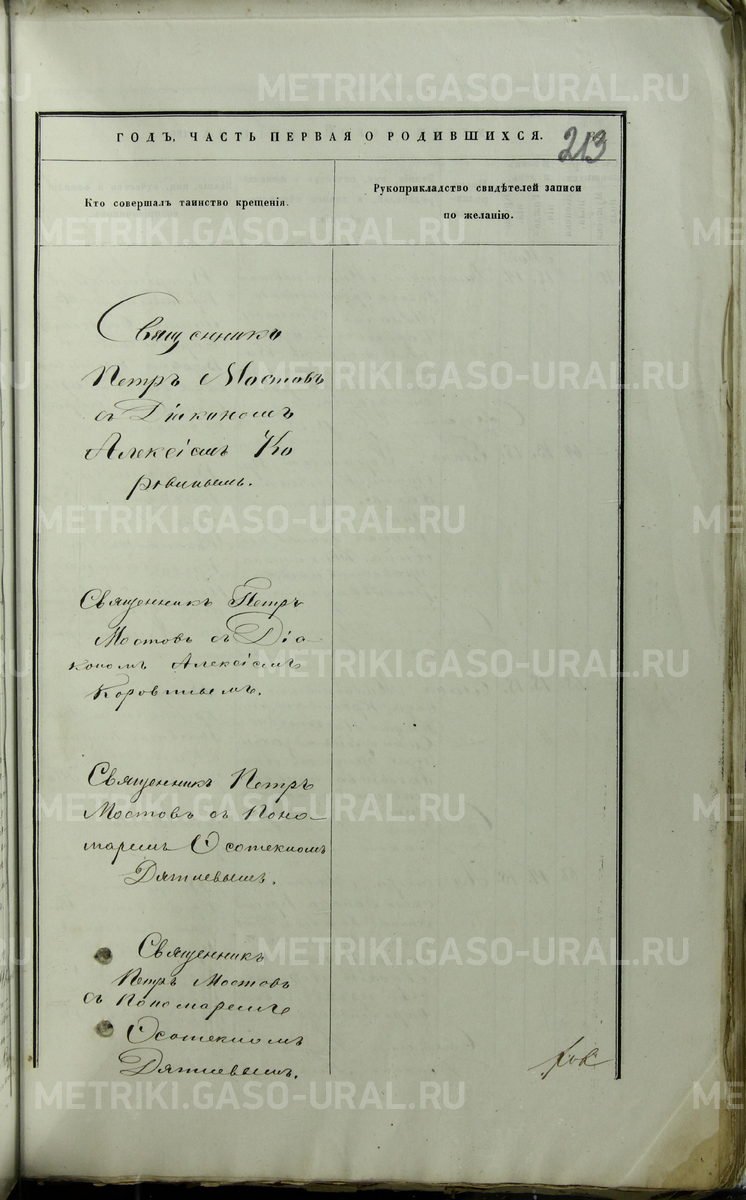 ГОДЪ, ЧАСТЬ ПЕРВАЯ О РОДИВШИХСЯ.
213
Кто совершалъ таинство крещенія.
Рукоприкладство свидѣтелей записи
по желанію.
Священникъ
Петръ Мостовъ
съ Діакономъ
Алексіемъ Ко
ровинымъ.
Священникъ Петръ
Мостовъ съ Діа-
кономъ Алексіемъ
Коровинымъ.
Священникъ Петръ
Мостовъ съ Поно-
маремъ
Дятлевымъ.
Священникъ
Петръ Мостовъ
съ Пономаремъ
Дятлевымъ.
METRIKI.GASO-URAL.RU